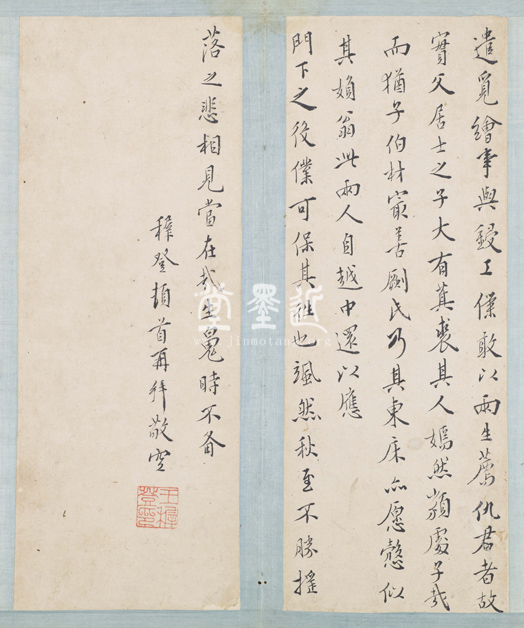 遣覓繪事與鋟工僕敢以兩生薦仇君者故
實父居士之子大有萁裘其人嫣然類處子哉
而猶子伯材㝡善劂氏乃其東床亦愿愨似
其婦翁此兩人自越中還以應
門下之役僕可保其往也颯然秋至不勝搖
落之悲相見當在哉生魄時不备
穉登頓首再拜敬空
王穉登印
近墨堂
www.jinmotang.org